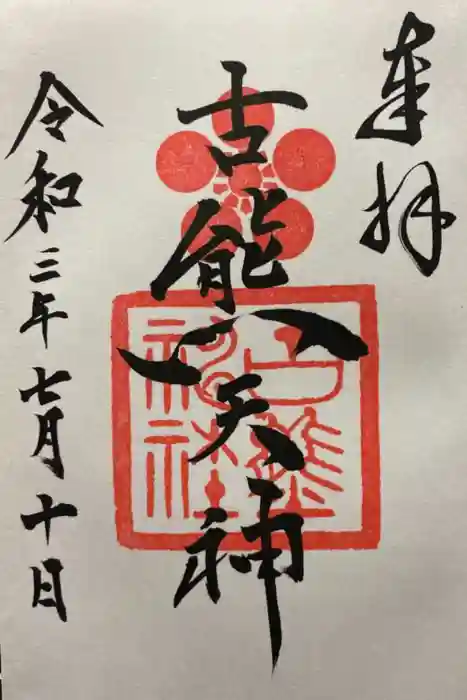 奉拝
古熊天神
令和三年七月十日